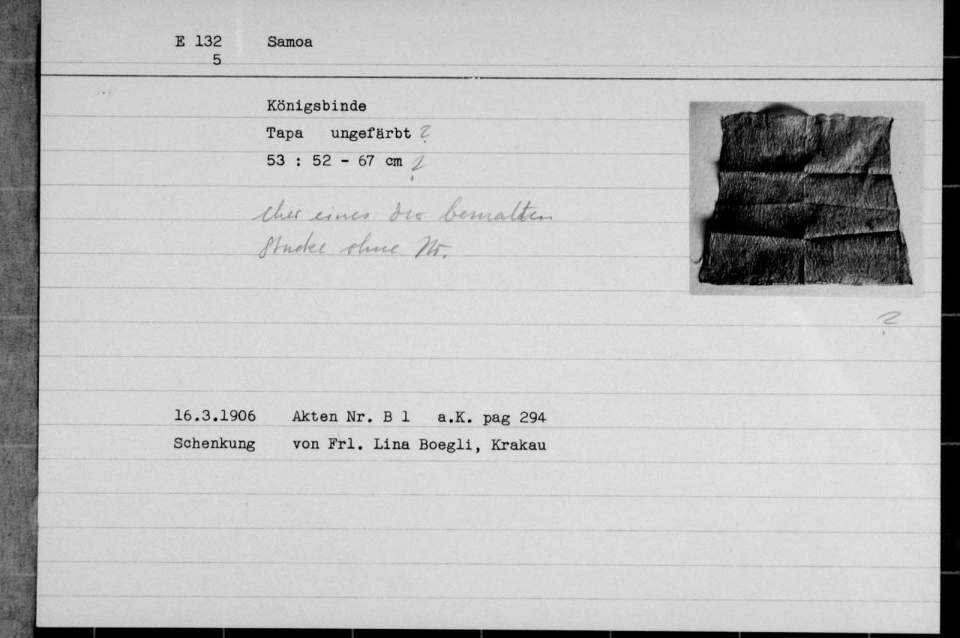 E 132 Samoa
5
Königsbinde
Tapa ungefärbt ?
53 : 52 - 67 cm ?
eher eines der bemalten
Stücke ohne Nr.
?
16.3.1906 Akten Nr. B 1 a.K. pag 294
Schenkung von Frl. Lina Boegli, Krakau